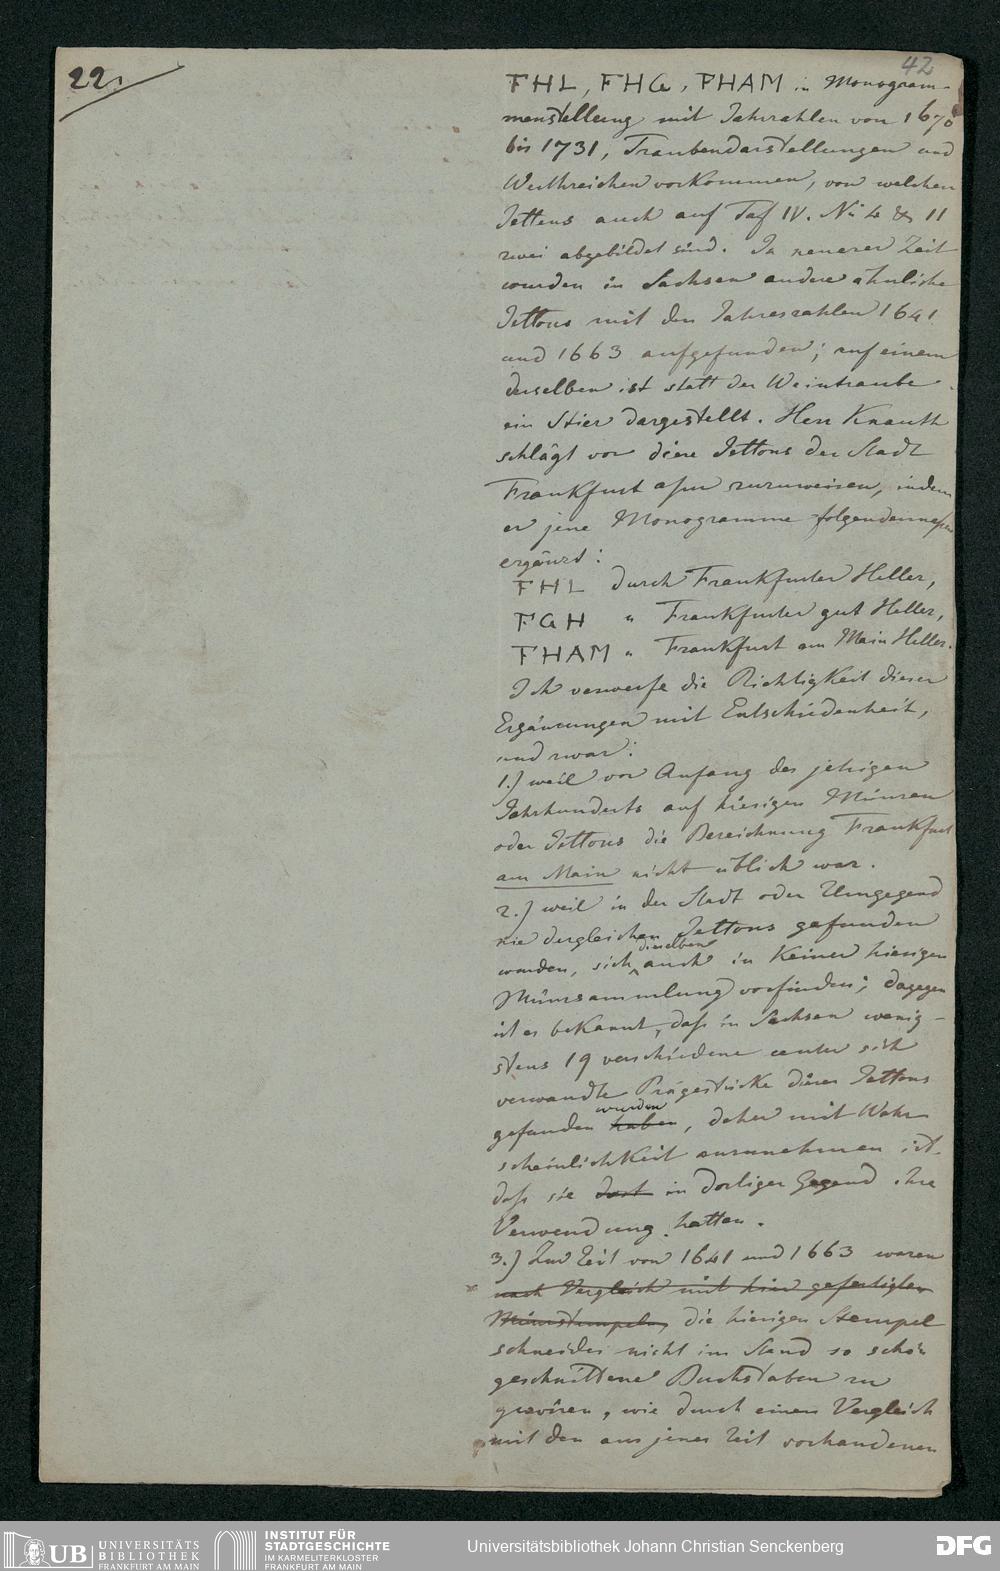 22.
42
FHL, FHG, PHAM in Monogram-
menstellung mit Jahrzahlen von 1670
bis 1731, Traubendarstellungen und
Werthzeichen vorkommen, von welchen
Jettons auch auf Taf IV. No 4 & 11
zwei abgebildet sind. In neuerer Zeit
wurden in Sachsen andere ähnliche
Jettons mit den Jahreszahlen 1641
und 1663 aufgefunden; auf einem
derselben ist statt der Weintraube
ein Stier dargestellt. Herr Knauth
schlägt vor diese Jettons der Stadt
Frankfurt a/m zuzuweisen, indem
er jene Monogramme folgendermaßen
ergänzt:
FHL durch Frankfurter Heller,
FGH " Frankfurter gut Heller,
FHAM " Frankfurt am Main Heller.
Ich verwerfe die Richtigkeit dieser
Ergänzungen mit Entschiedenheit,
und zwar:
1.) weil vor Anfang des jetzigen
Jahrhunderts auf hiesigen Münzen
oder Jettons die Bezeichnung Frankfurt
am Main nicht üblich war.
2.) weil in der Stadt oder Umgegend
nie dergleichen Jettons gefunden
dieselben
worden, sich auch in keiner hiesigen
Münzsammlung vorfinden; dagegen
ist es bekannt, daß in Sachsen wenig-
stens 19 verschiedene unter sich
verwandte Prägestücke dieser Jettons
wurden
gefunden haben, daher mit Wahr-
scheinlichkeit anzunehmen ist,
daß sie dort in dortiger Gegend ihre
Verwendung hatten.
3.) Zur Zeit von 1641 und 1663 waren
nach Vergleich mit hier gefertigten
Münzstempeln, die hiesigen Stempel
schneider nicht im Stand so schön
geschnittene Buchstaben zu
graviren, wie durch einen Vergleich
mit den aus jener Zeit vorhandenen
UB UNIVERSITÄTS
BIBLIOTHEK
FRANKFURT AM MAIN
INSTITUT FÜR
STADTGESCHICHTE
IM KARMELITERKLOSTER
FRANKFURT AM MAIN
Universitätsbibliothek Johann Christian Senckenberg
DFG